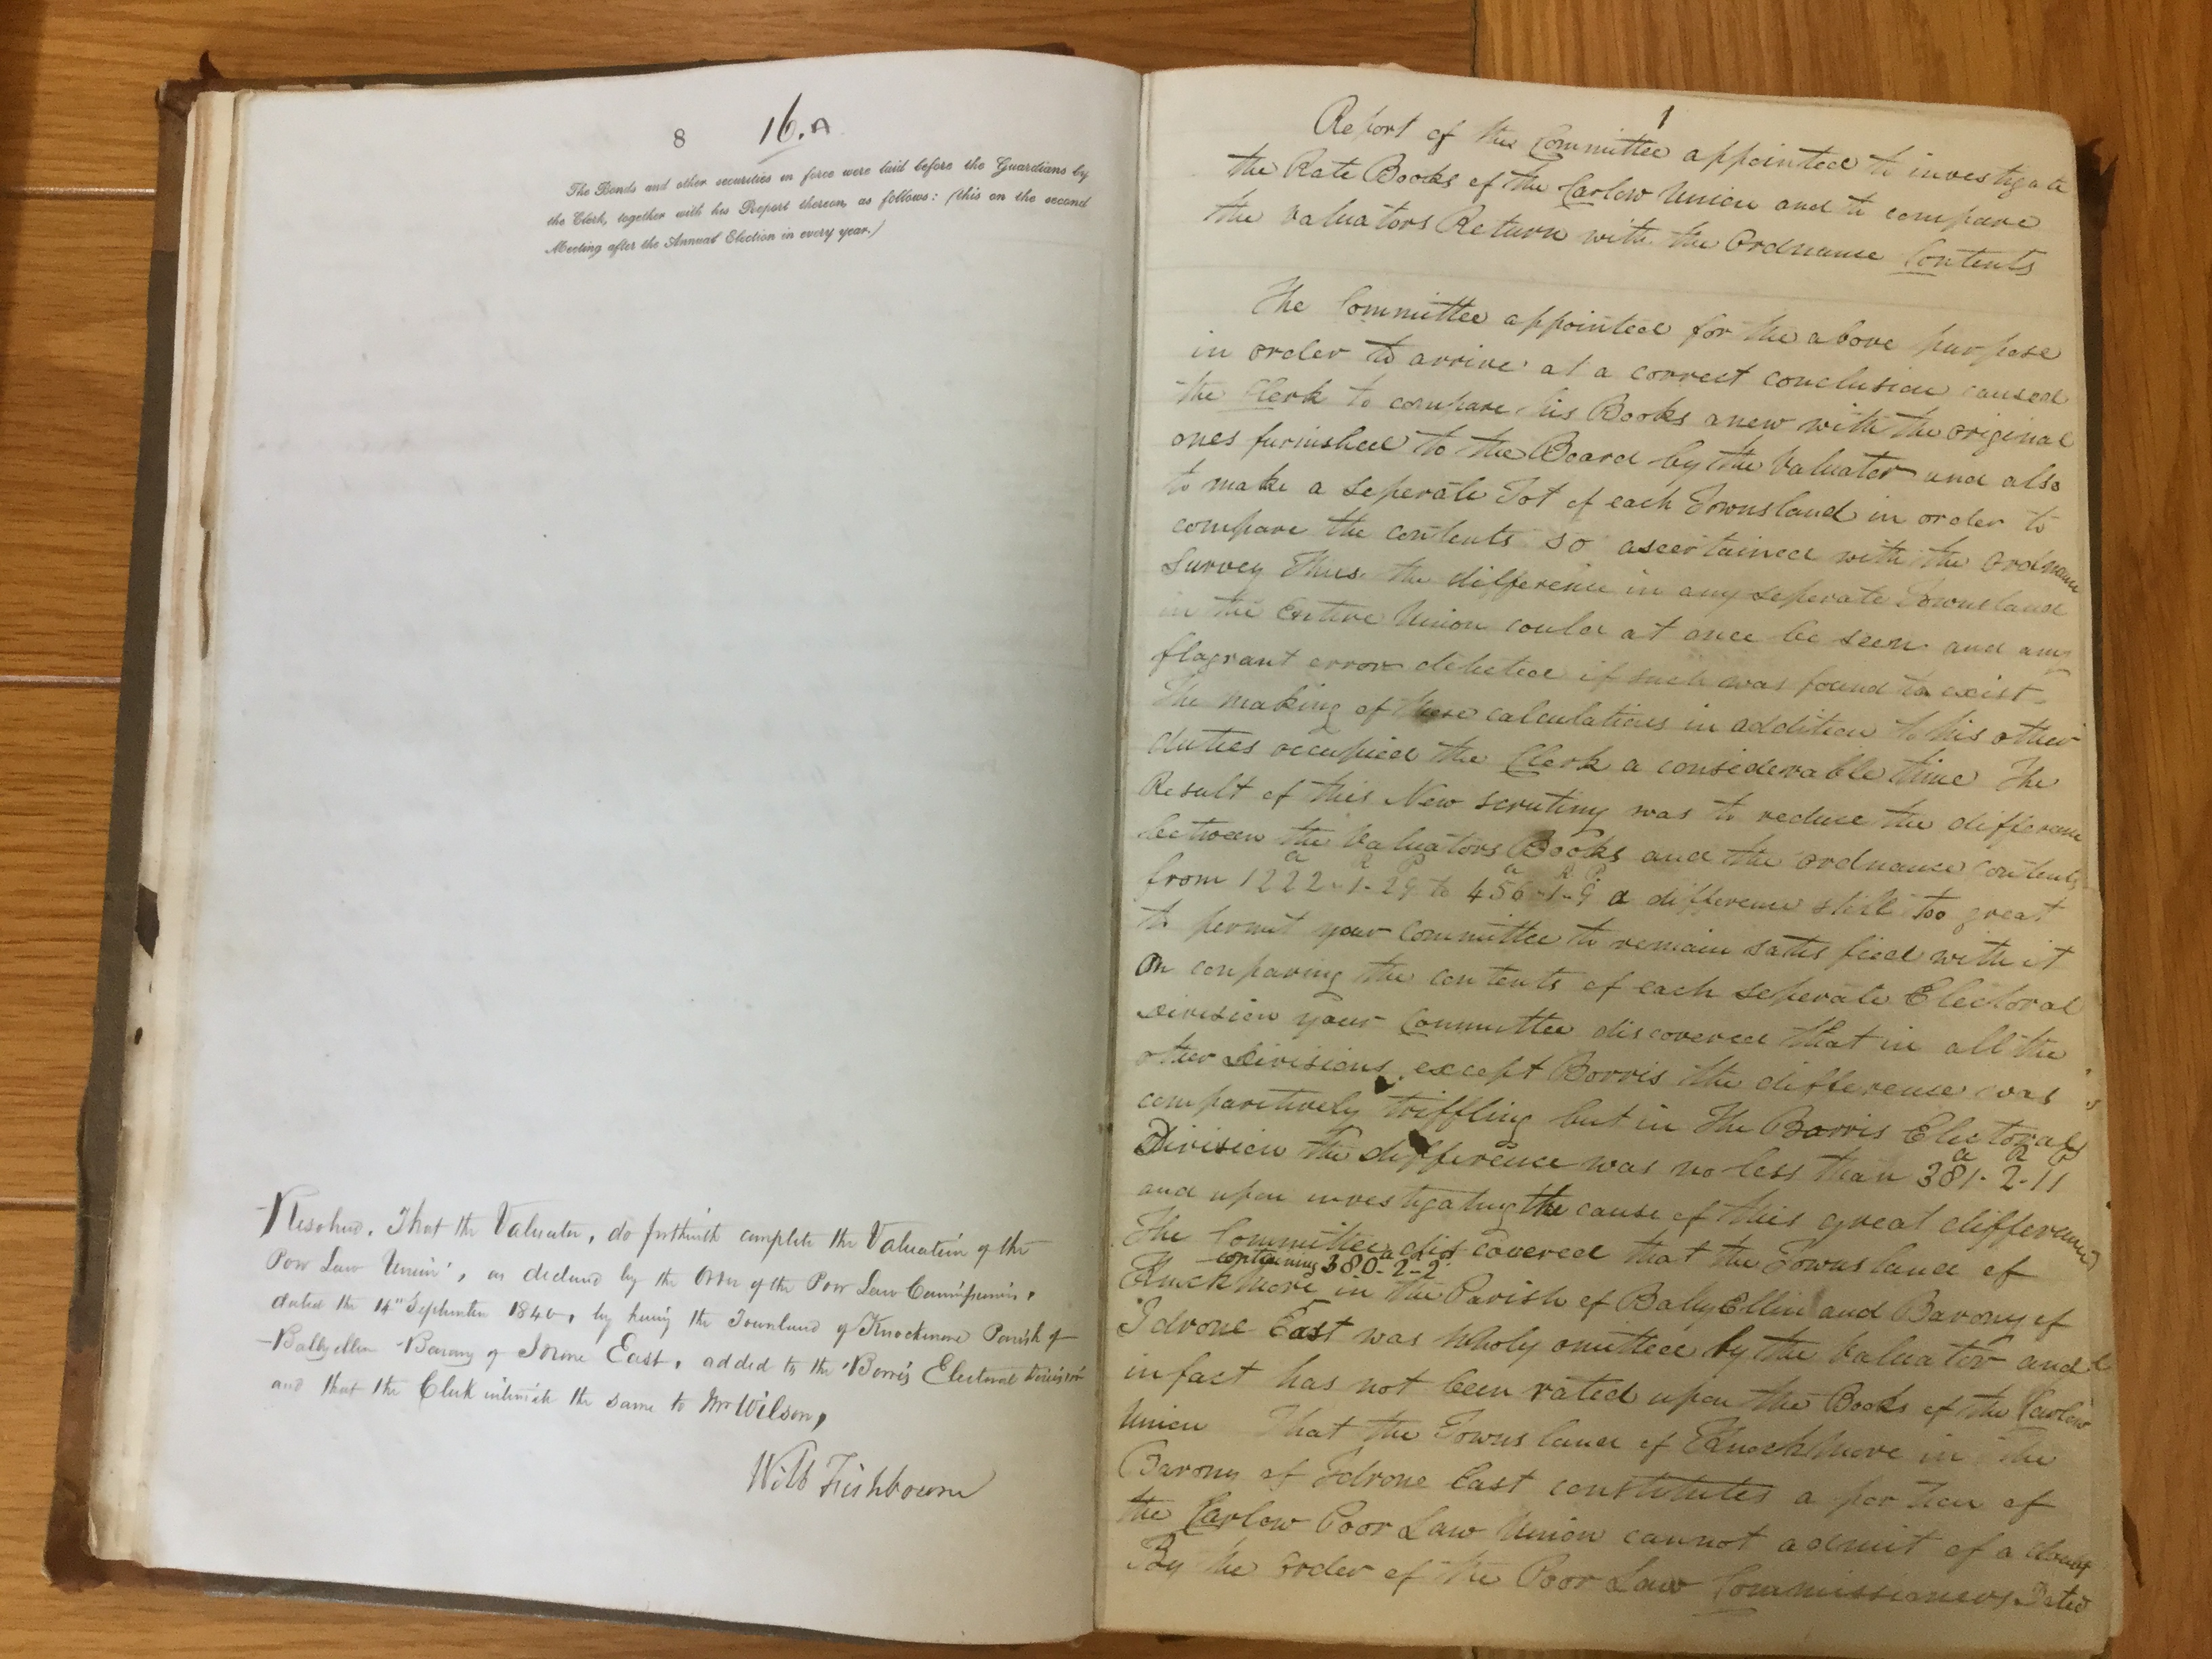 8 16.A
The Bonds and other securities in force were laid before the Guardians by
the Clerk, together with his Report thereon, as follows: (this on the second
Meeting after the Annual Election in every year.)
Resolved. That the Valuator, do forthwith complete the Valuation of the
Poor Law Union, as declared by the Order of the Poor Law Commissioners,
dated the 14" September 1840, by having the Townland of Knockmore Parish of
Ballyellin Barony of Idrone East, added to the Borris Electoral Division
and that the Clerk intimate the same to Mr Wilson,
Will Fishbourne
1
Report of the Committee appointed to investigate
the Rate Books of the Carlow Union and to compare
the Valuators Return with the Ordnance Contents
The Committee appointed for the above purpose
in order to arrive at a correct conclusion caused
the Clerk to compare his Books anew with the original
ones furnished to the Board by the Valuator and also
to make a seperate Tot of each Townsland in order to
compare the contents so ascertained with the Ordnance
Survey Thus the difference in any seperate Townsland
in the Entire Union could at once be seen and any
flagrant error detected if such was found to exist
The making of these calculations in addition to his other
duties occupied the Clerk a considerable time The
Result of this New scrutiny was to reduce the difference
between the Valuators Books and the Ordnance contents
a R P a R P
from 1222-1-29 to 456-1-9 a difference still too great
to permit your Committee to remain satisfied with it
On conparing the contents of each seperate Electoral
Division your Committee discovered that in all the
other Divisions except Borris the difference was
comparitively triffling but in the Borris Electoral
a R P
Division the difference was no less than 381-2-11
and upon investigating the cause of this great difference
The Committee discovered that the Townsland of
containing 380-2-2
KnockMore in the Parish of BallyEllin and Barony of
Idrone East was wholy omitted by the Valuator and
in fact has not been rated upon the Books of the Carlow
Union That the Townsland of KnockMore in the
Barony of Idrone East constitutes a portion of
the Carlow Poor Law Union cannot admit of a doubt
By the order of the Poor Law Commissioners Dated